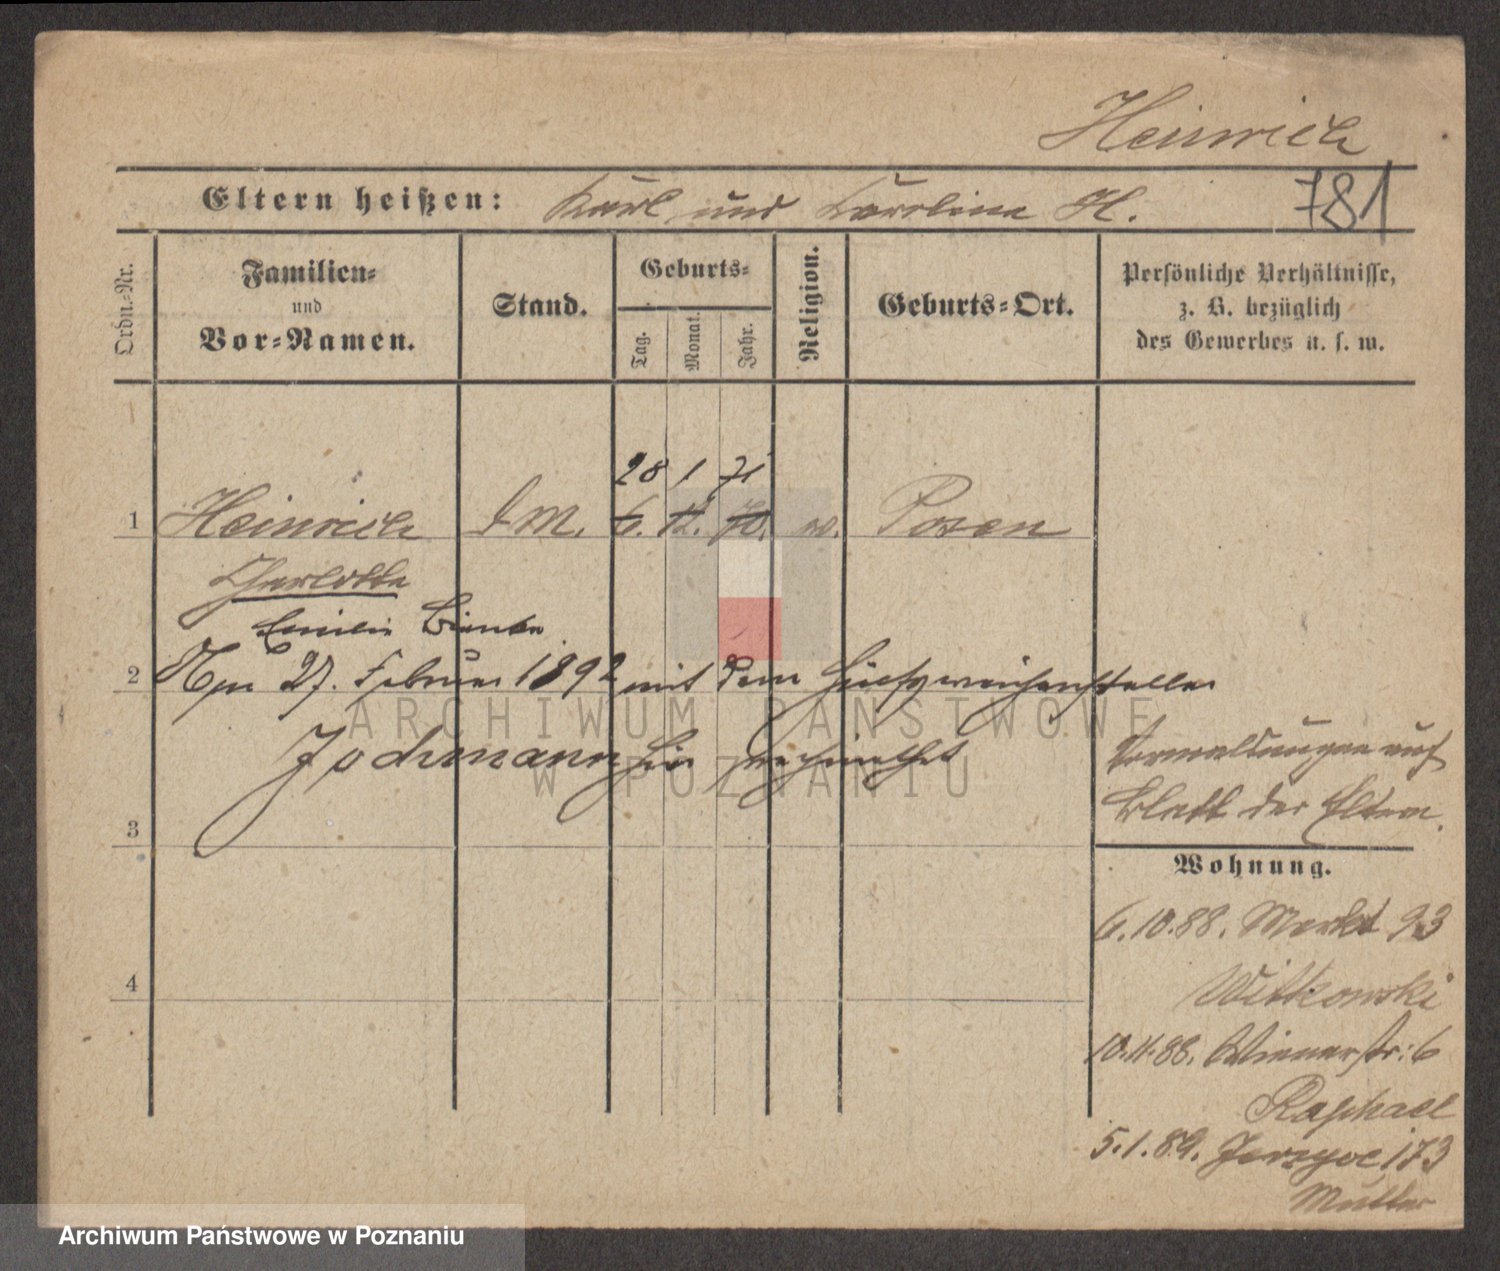 Heinrich
Eltern heißen: Karl und Karoline H. 781
Ordn.-Nr.
Familien-
und
Vor-Namen.
Stand.
Geburts-
Tag.
Monat.
Jahr.
Religion.
Geburts-Ort.
Persönliche Verhältnisse,
z. B. bezüglich
des Gewerbes u. s. w.
28 1 71
1 Heinrich 6. 12. 70. Posen
Charlotte
Emilie
2 Am 27. Februar 1892 mit dem Hilfsweichensteller
Jochmann hier verheirathet
Vermeldungen auf
Blatt der Eltern.
3
Wohnung.
6.10.88. Markt 93
Witkowski
4
10.11.88. Wienerstr: 6
Raphael
5.1.89. Jerzyce 173
Müller
ARCHIWUM PAŃSTWOWE
W POZNANIU
Archiwum Państwowe w Poznaniu